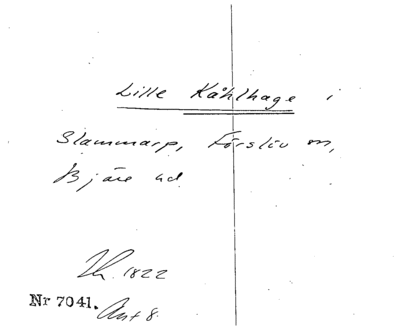 Lille Kåhlhage i
Slammarp, Förslöv sn,
Bjäre hd.
1822
Nr 7041. Akt 8.